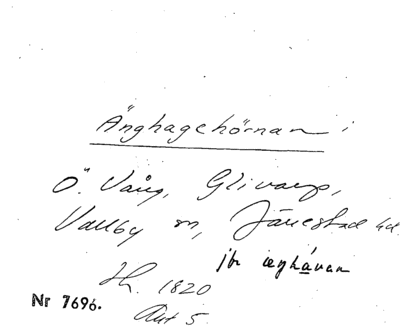 Änghagehörnan i
Ö. Vång, Glivarp,
Vallby sn, Järrestad hd.
jbr æŋhávan
Sk. 1820
Akt 5.
Nr 7696.